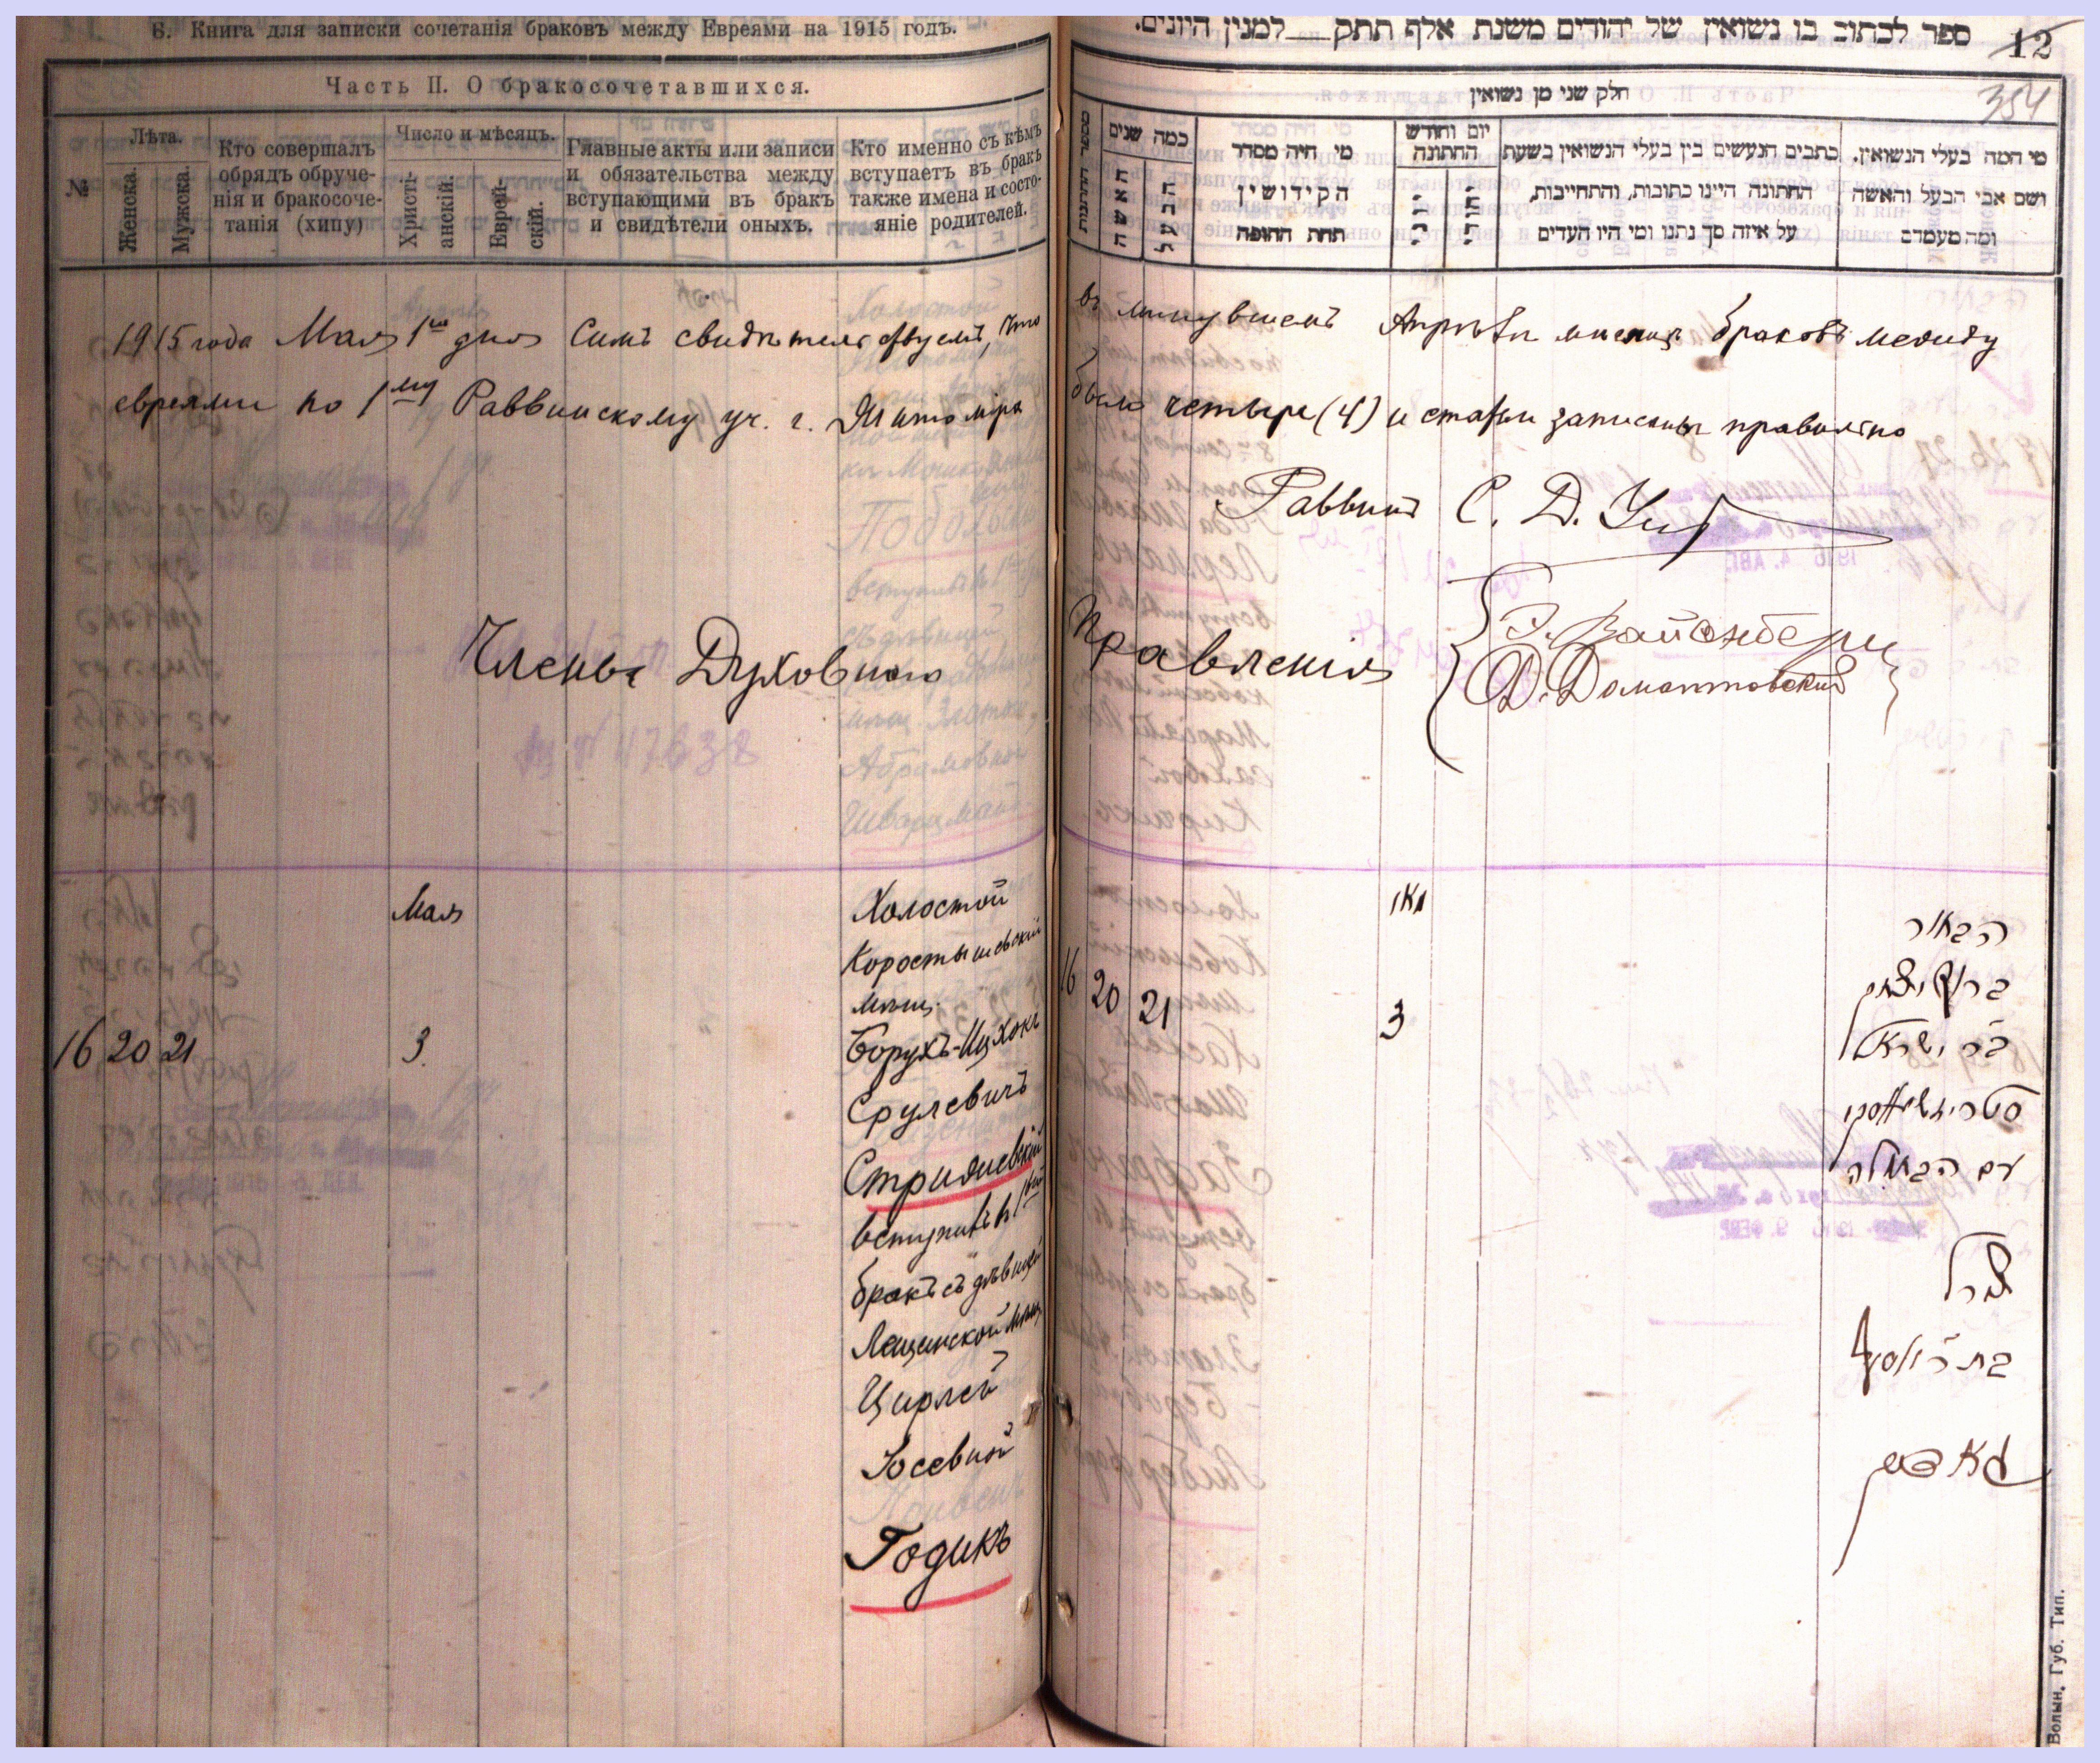 Б. Книга для записки сочетанія браковъ между Евреями на 1915 годъ.
Часть II. О бракосочетавшихся.
№
Лѣта.
Женска.
Мужска.
Кто совершалъ
обрядъ обруче-
нія и бракосоче-
танія (хипу)
Число и мѣсяцъ.
Христі-
анскій.
Еврей-
скій.
Главные акты или записи
и обязательства между
вступающими въ бракъ
и свидѣтели оныхъ.
Кто именно съ кѣмъ
вступаетъ въ бракъ
также имена и состо-
яніе родителей.
1915 года Мая 1го дня Симъ свидѣтельствуемъ, что
евреями по 1му Раввинскому уч. г. Житомiра
Члены Духовнаго
№ 47638
Мая
16 20 21 3
Холостой
Коростышевскiй
мѣщ.
Борухъ-Ицхокъ
Срулевичъ
Стрижевскiй
вступилъ въ 1вый
бракъ съ дѣвицей
Лещинской мѣщ.
Цирлей
Iосевной
Годикъ
ספר לכתוב בו נשואין של יהודים משנת אלף תתק למנין היונים.
12
354
חלק שני מן נשואין
מספר החתונות
כמה שנים
האשה
הבעל
מי היה מסדר
הקידושין
תחת החופה
יום וחודש
החתונה
יוני
יהודי
כתבים הנעשים בין בעלי הנשואין בשעת
החתונה היינו כתובות, והתחייבות,
על איזה סך נתנו ומי היו העדים
מי המה בעלי הנשואין,
ושם אבי הבעל והאשה
ומה מעמדם
въ минувшемъ Апрѣлѣ мѣсяцѣ браковъ между
было четыре (4) и статьи записаны правильно
Раввинъ С. Д.
Правленiя
Э. Вайсенбергъ
Д. Домантовскiй
מאי
16 20 21 3
הבחור
ברוך יצחק
בר ישראל
סטריזשעווסקי
עם הבתולה
צירל
בת ר' יוסף
גאדיק
Волын. Губ. Тип.